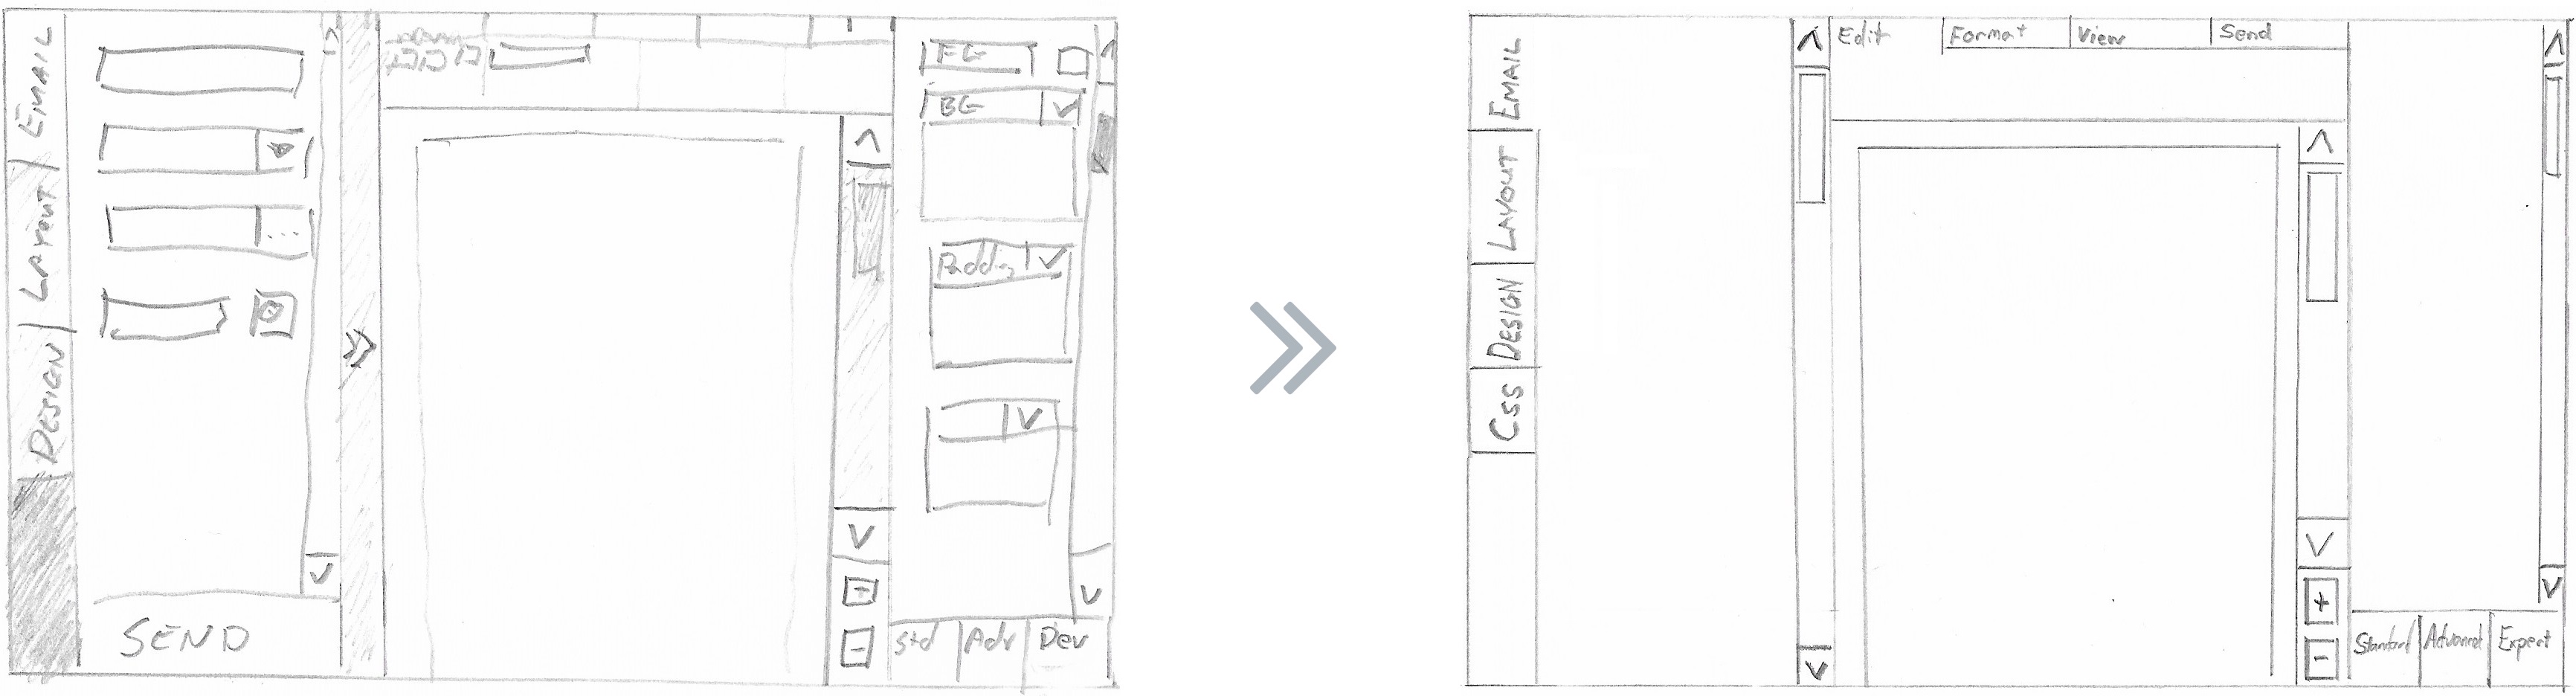 EMAIL
LAYOUT
DESIGN
SEND
FG
BG
Padding
Std
Adv
Dev
EMAIL
LAYOUT
DESIGN
CSS
Edit
Format
View
Send
Standard
Advanced
Expert